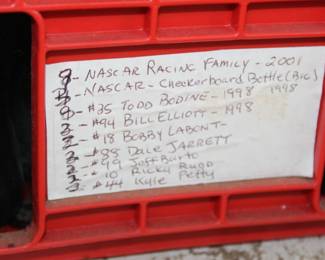 - NASCAR RACING FAMILY - 2001
- NASCAR - Checkerboard Bottle (BIG) 1998
- #35 TODD BODINE - 1998
- #94 BILL ELLIOTT - 1998
- #18 BOBBY LABONT-
- #88 Dale JARRETT
- #99 Jeff Burto
- #10 Ricky Rudd
- #44 Kyle Petty